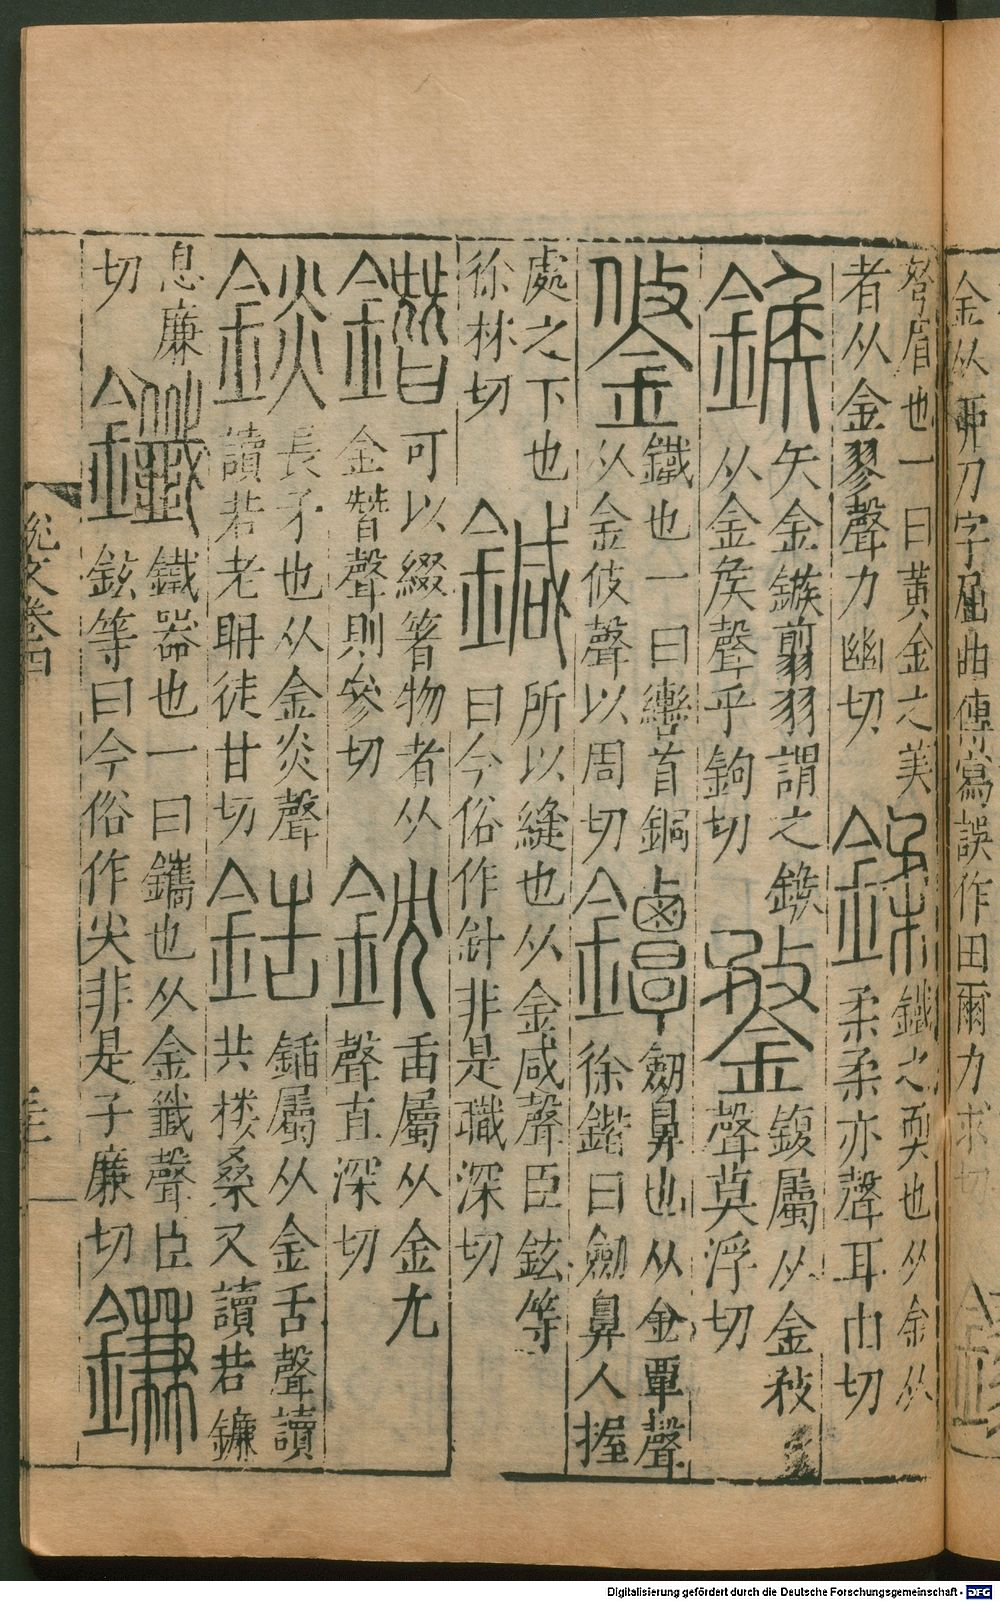 金从丣刀字屈曲傳寫誤作田爾力求切
弩眉也一曰黄金之美
者从金翏聲力幽切
鍒
鐵之耎也从金从
柔柔亦聲耳由切
鍭
矢金鏃翦羽謂之鍭
从金矦聲乎鉤切
鍪
鍑屬从金敄
聲莫浮切
鋚
鐵也一曰轡首銅
以金攸聲以周切
鐔
劒鼻也从金覃聲
徐鍇曰劒鼻人握
處之下也
徐林切
鍼
所以縫也从金咸聲臣鉉等
曰今俗作針非是職深切
鐕
可以綴箸物者从
金朁聲則參切
鈂
臿屬从金冘
聲直深切
錟
長矛也从金炎聲
讀若老耼徒甘切
銛
鍤屬从金舌聲讀
若棪桑又讀若鐮
息廉
切
鑯
鐵器也一曰鐫也从金韱聲臣
鉉等曰今俗作尖非是子廉切
鎌
說文卷四
Digitalisierung gefördert durch die Deutsche Forschungsgemeinschaft - DFG